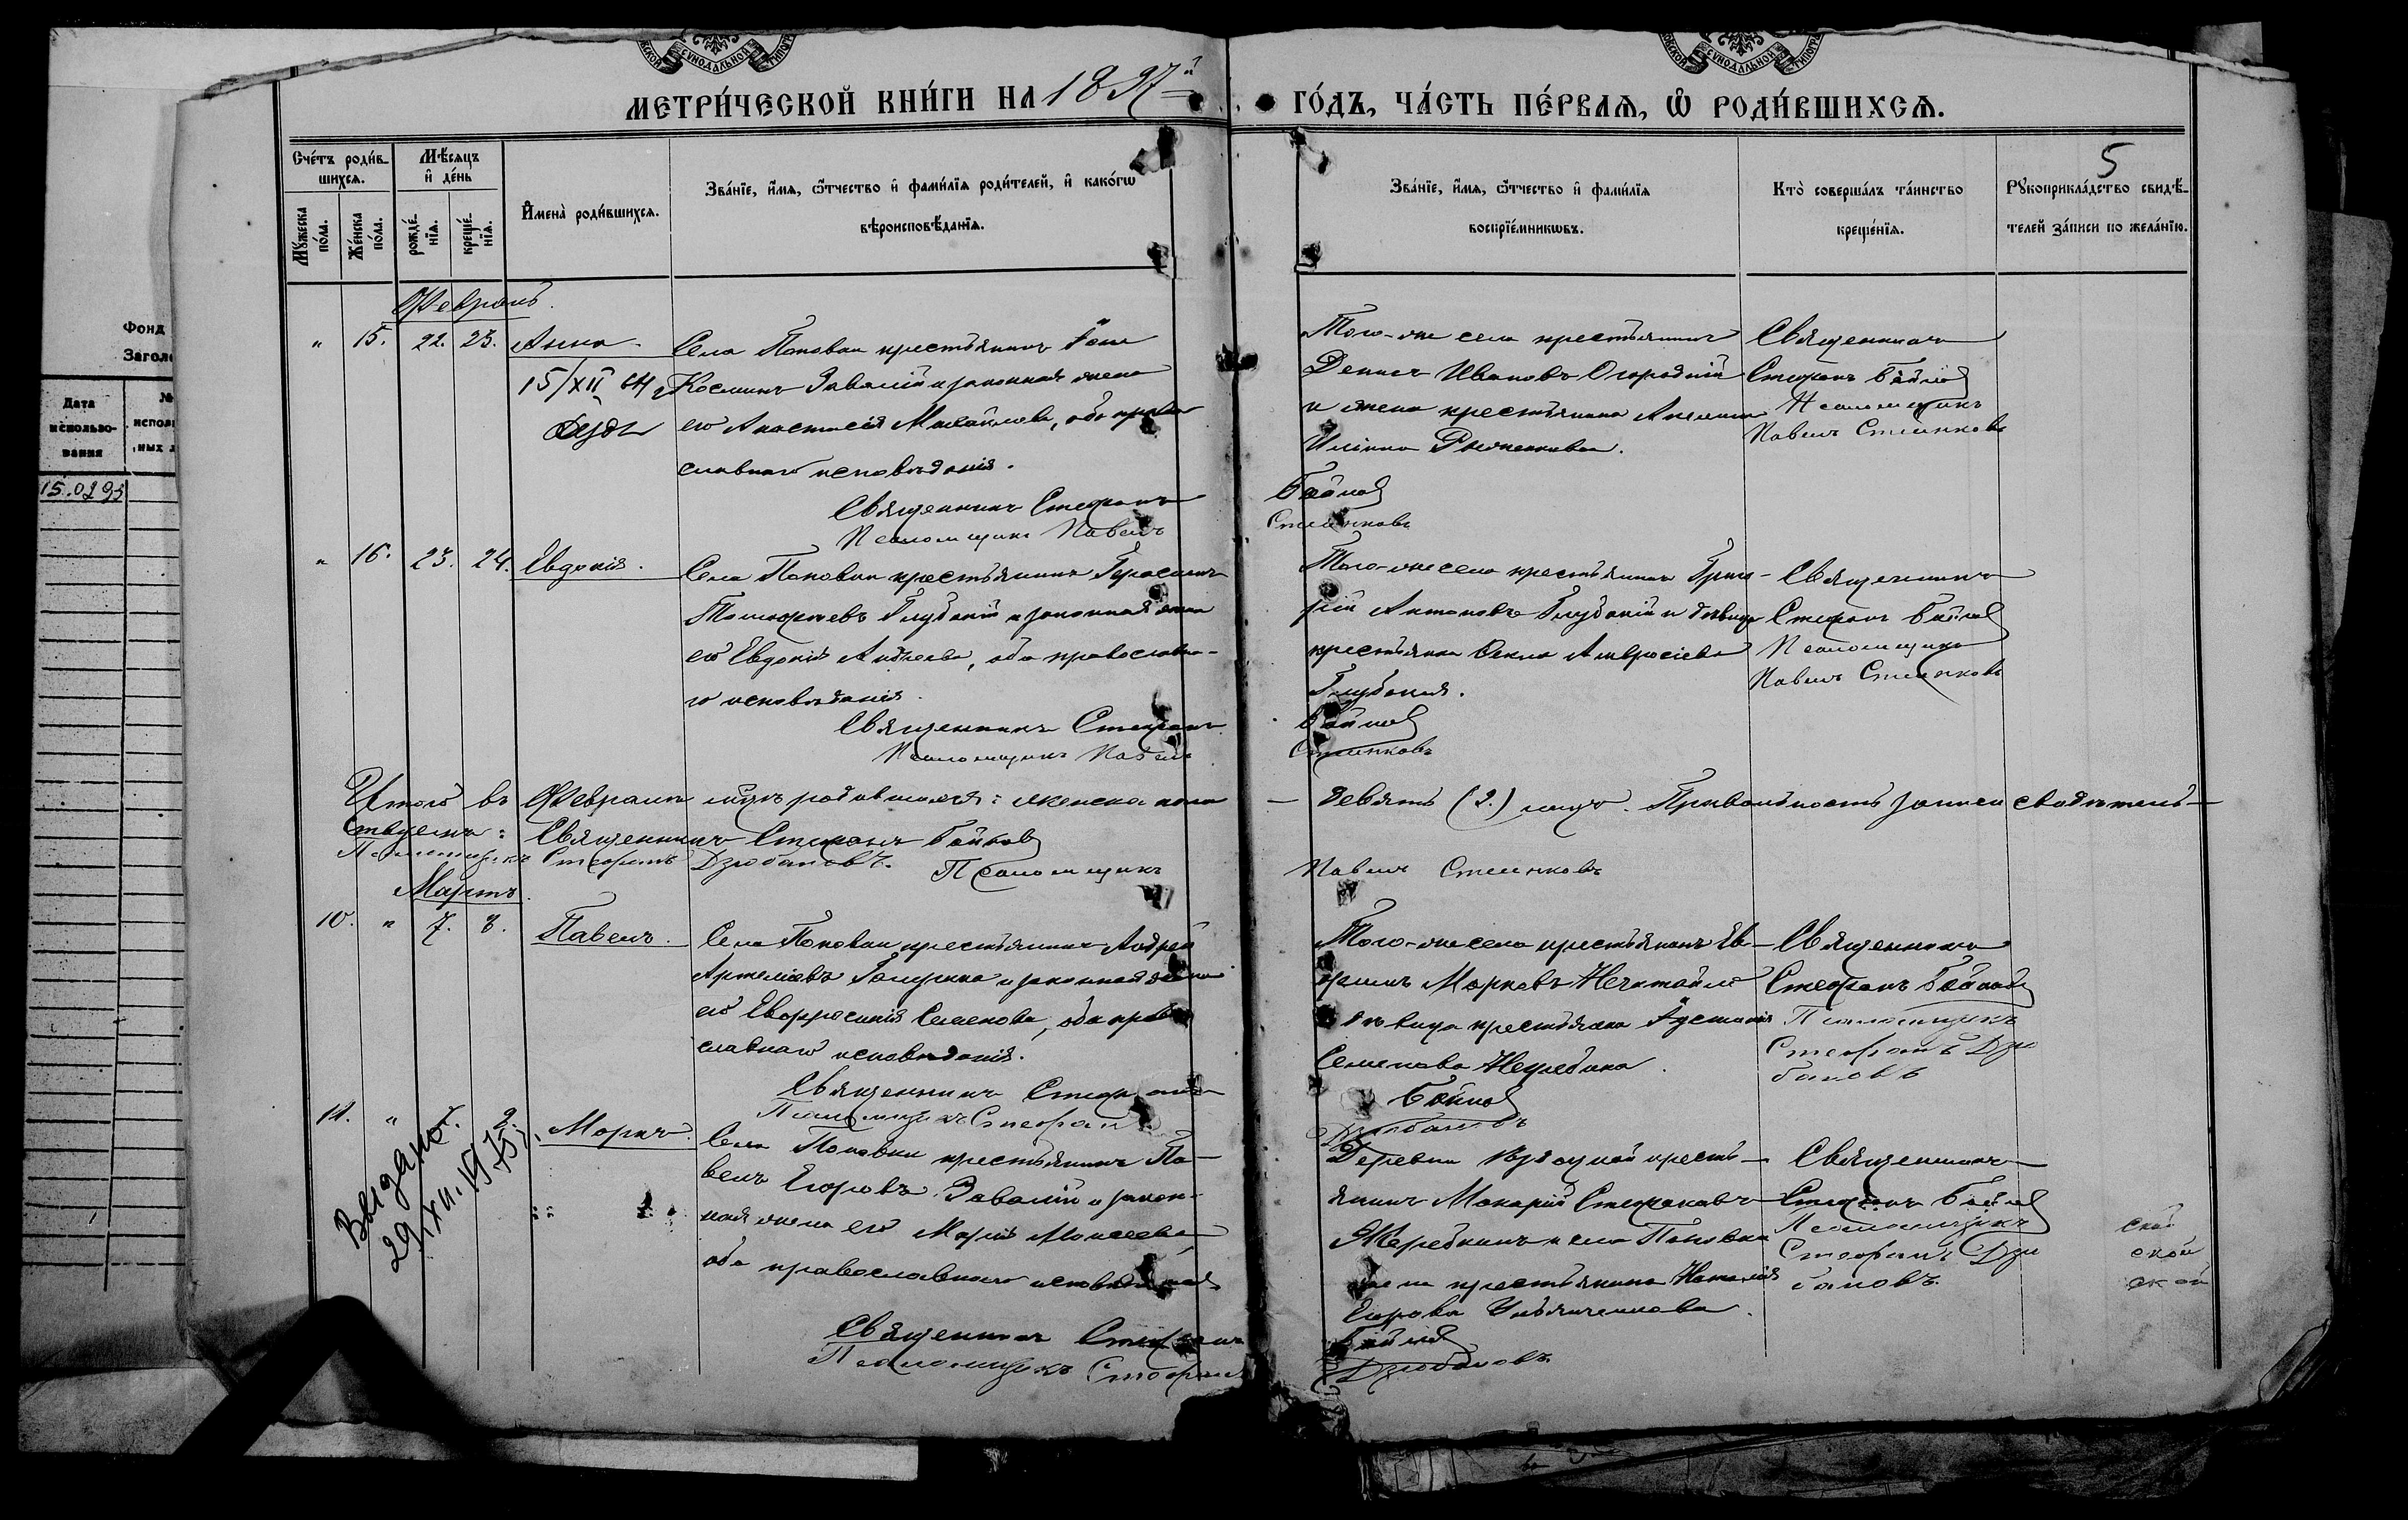 МЕТРИ́ЧЕСКОЙ КНИ́ГИ НА 1897й ГО́ДЪ, ЧА́СТЬ ПЕ́РВАЯ, Ѡ РОДИ́ВШИХСЯ.
5
Сче́тъ роди́в-
шихся.
Мѣсяцъ
и де́нь
Мꙋ́жеска
по́ла.
Же́нска
по́ла.
рожде́-
нїя.
креще́-
нїя.
И҆мена̀ роди́вшихся.
Зва́нїе, и҆́мя, ѻ҆́тчество и҆ фами́лїя роди́телей, и҆ како́гѡ
вѣроисповѣ́данїя.
Зва́нїе, и҆́мя, ѻ҆́тчество и҆ фами́лїя
воспрїе́мникѡвъ.
Кто̀ соверша́лъ та́инство
креще́нїя.
Рꙋкоприкла́дство свидѣ́-
телей за́писи по жела́нїю.
Фонд
Дата
использо-
вания
15.02 95
Февраль.
" 15. 22. 23. Анна.
Села Поповки крестьянинъ
Косминъ Завалій и законная жена
его Анастасія Михайлова, оба право
славнаго исповѣданія.
Священникъ Стефанъ
Псаломщикъ Павелъ
15/XII 64 г
Того-же села крестьянинъ
Денисъ Ивановъ Огородній
и жена крестьянина
Бойков
Стеенковъ
Священникъ
Стефанъ Бойков
Псаломщикъ
Павелъ Стеенковъ
" 16. 23. 24. Евдокія.
Села Поповки крестьянинъ Герасимъ
Тимофеевъ Глубокій и законная жена
его Евдокія Андреева, оба православна-
го исповѣданія.
Священникъ Стефанъ
Псаломщикъ Павелъ
Того-же села крестьянинъ Григо-
рій Антоновъ Глубокій и дѣвица
крестьянка Ѳекла Амвросіева
Глубокая.
Бойков
Стеенковъ
Священникъ
Стефанъ Бойков
Псаломщикъ
Павелъ Стеенковъ
Итого въ Февралѣ мцѣ родившихся: женска пола — девять (9.) лицъ. Правильность записи свидѣтель-
ствуемъ: Священникъ Стефанъ Бойков
Псаломщикъ Стефанъ Дзюбановъ. Псаломщикъ Павелъ Стеенковъ
Мартъ.
10. " 7. 8. Павелъ.
Села Поповки крестьянинъ Андрей
Артеміевъ Галушка и законная жена
его Евфросинія Семенова, оба право
славнаго исповѣданія.
Священникъ Стефанъ
Псаломщикъ Стефанъ
Того-же села крестьянинъ Ев-
фимъ Марковъ Нечитайло
и дѣвица крестьянка Іустинія
Семенова
Бойков
Дзюбановъ
Священникъ
Стефанъ Бойков
Псаломщикъ
Стефанъ Дзю
бановъ
11. " 9. Маркъ.
Села Поповки крестьянинъ Па-
велъ Егоровъ Завалій и закон-
ная жена его Марія Моисеева
оба православнаго исповѣданія.
Священникъ Стефанъ
Псаломщикъ Стефанъ
Выдано
29.XII.1975 г.
Деревни кресть-
янинъ Макарій Стефановъ
Жеребкинъ и села Поповки
жена крестьянина Наталія
Егорова Ульянченкова.
Бойков
Дзюбановъ
Священникъ
Стефанъ Бойков
Псаломщикъ
Стефанъ Дзю
бановъ